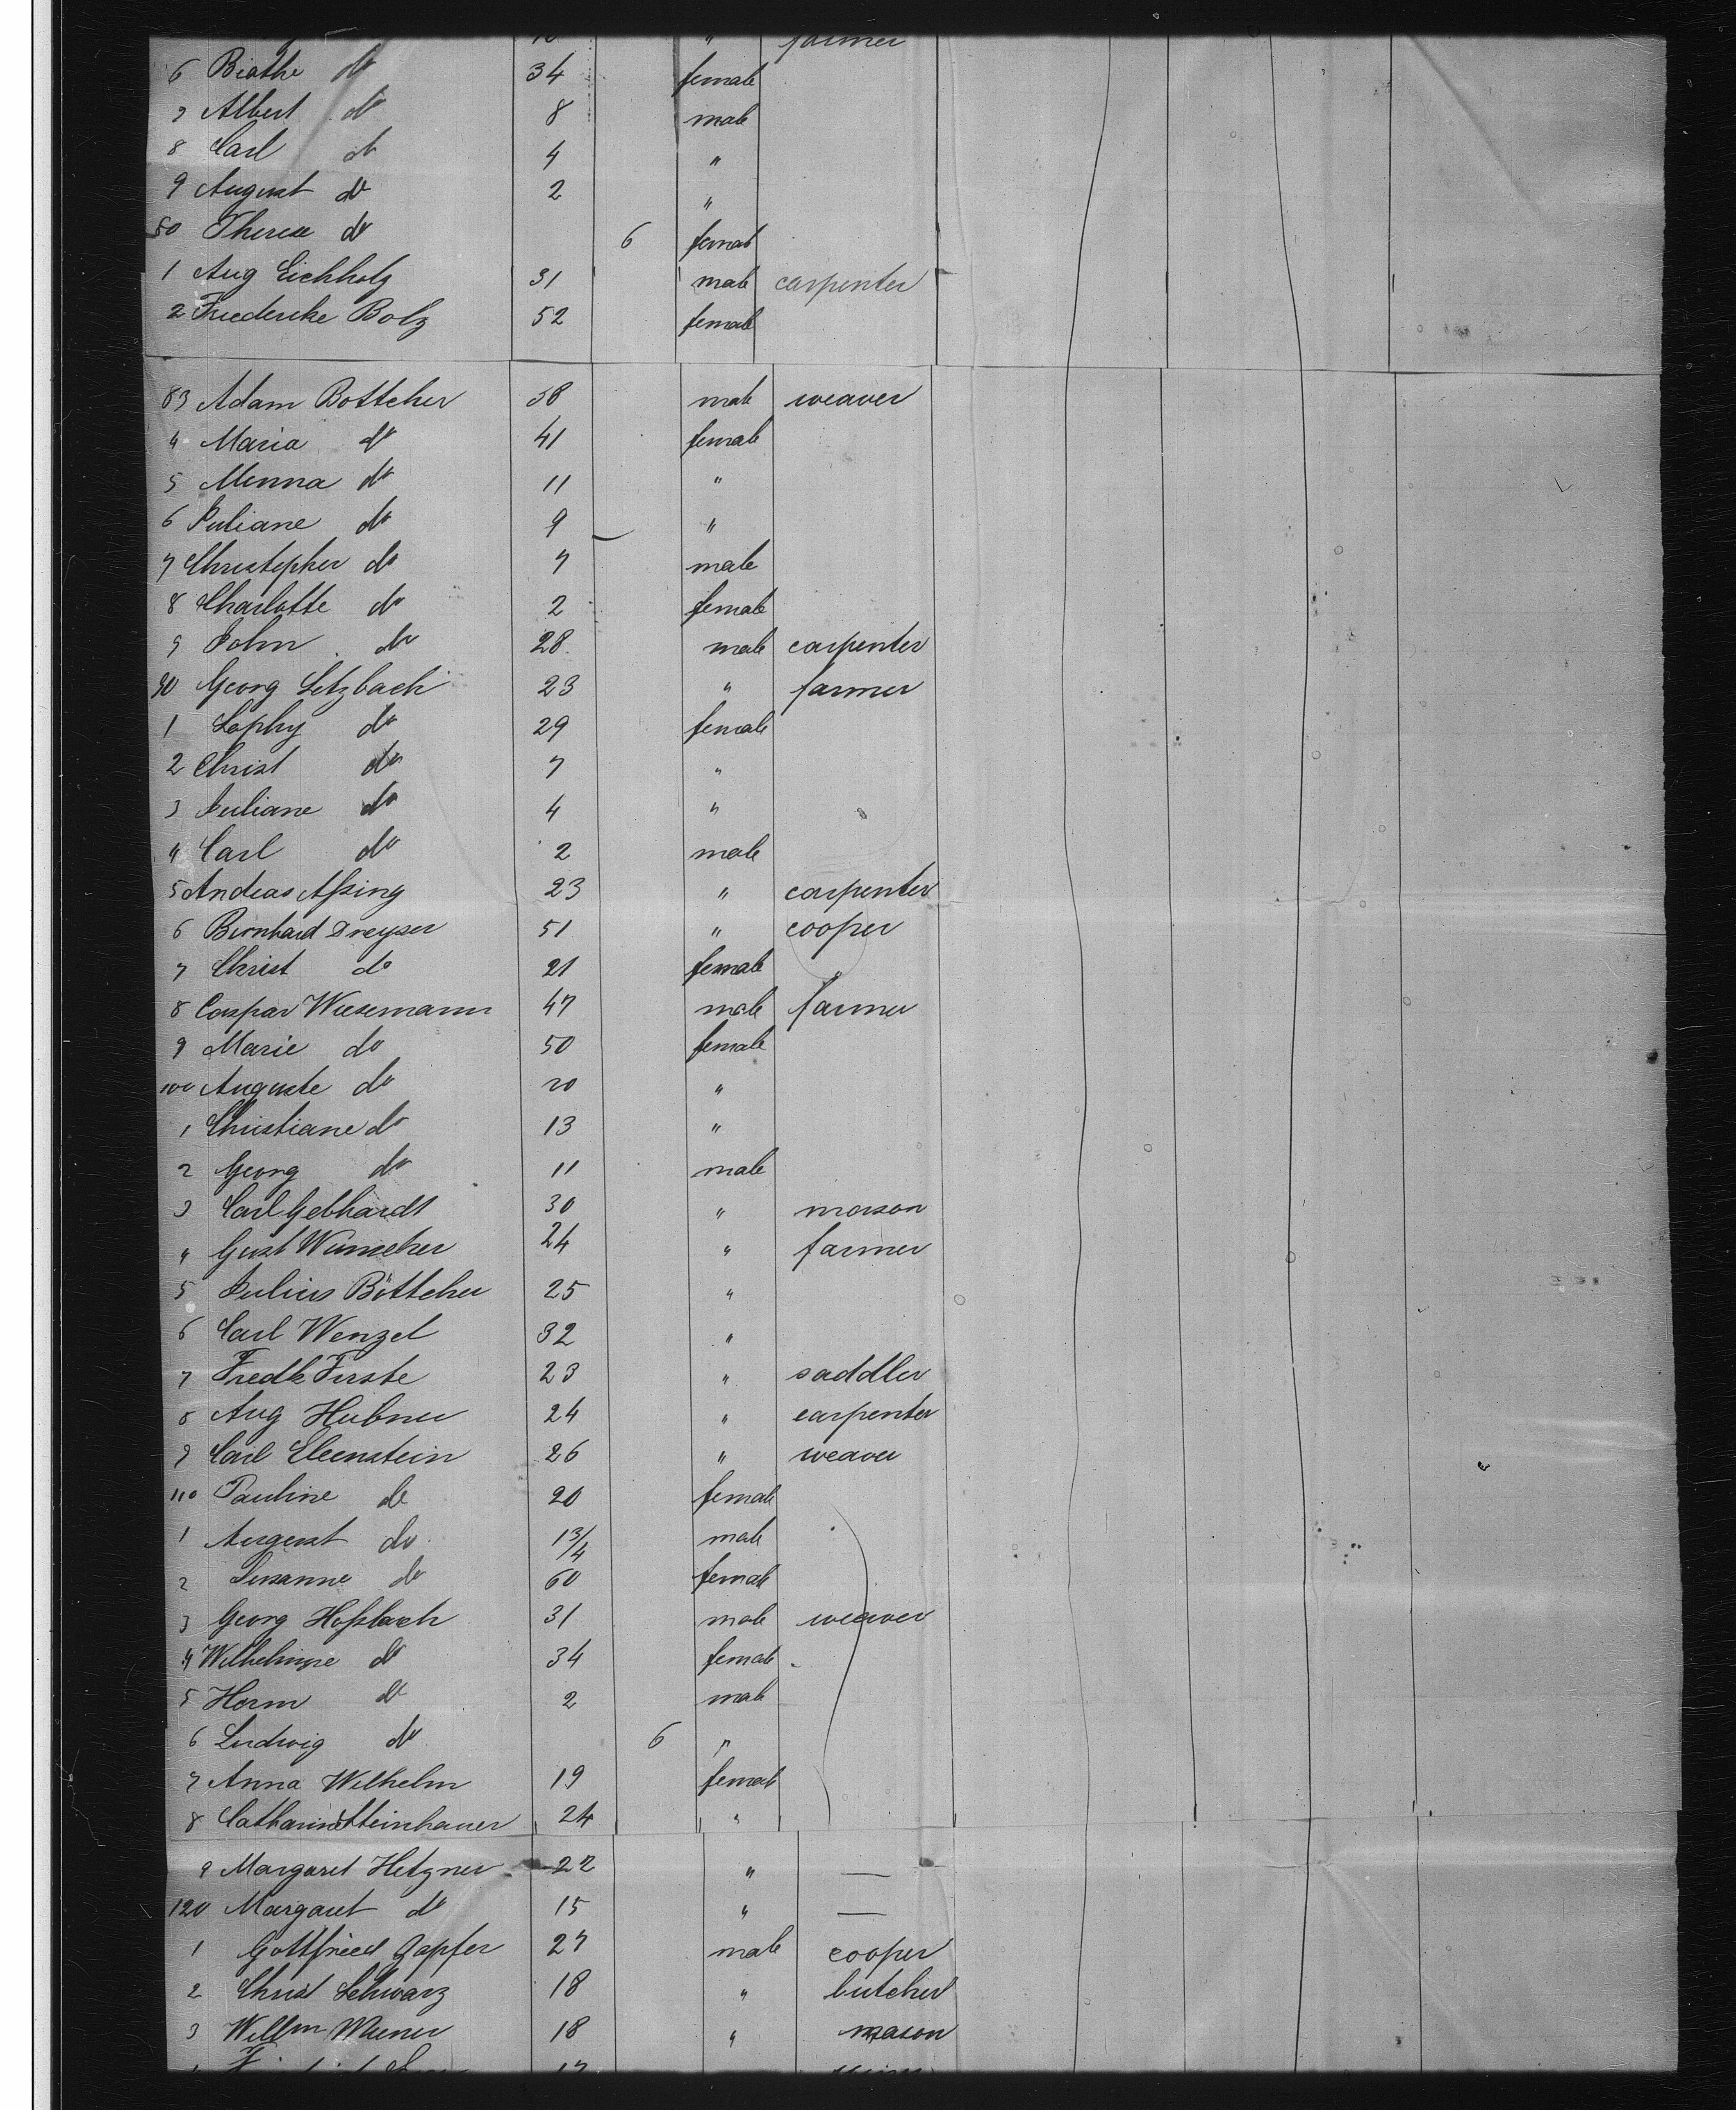 farmer
6 Beathe do 34 female
7 Albert do 8 male
8 Carl do 4 "
9 August do 2 "
80 Therese do 6 female
1 Aug Eichholz 31 male carpenter
2 Friederike Bolz 52 female
83 Adam Bottcher 38 male weaver
4 Maria do 41 female
5 Minna do 11 "
6 Juliane do 9 "
7 Christopher do 7 male
8 Charlotte do 2 female
9 John do 28 male carpenter
90 Georg Letzbach 23 " farmer
1 Sophy do 29 female
2 Christ do 7 "
3 Juliane do 4 "
4 Carl do 2 male
5 Andreas Aßing 23 " carpenter
6 Bernhard Dreyser 51 " cooper
7 Christ do 21 female "
8 Caspar Wiesemann 47 male farmer
9 Marie do 50 female
100 Auguste do 20 "
1 Christiane do 13 "
2 Georg do 11 male
3 Carl Gebhardt 30 " mason
4 Gust Wunscher 24 " farmer
5 Julius Böttcher 25 "
6 Carl Wenzel 32 "
7 Fredk Ferste 23 " saddler
8 Aug Hubner 24 " carpenter
9 Carl Eleenstein 26 " weaver
110 Pauline do 20 female
1 August do 1 3/4 male
2 Susanne do 60 female
3 Georg Hoßbach 31 male weaver
4 Wilhelmine do 34 female
5 Herm do 2 male
6 Ludwig do 6 "
7 Anna Wilhelm 19 female
8 Catharine Steinhauer 24 "
9 Margaret Hetzner 22 " —
120 Margaret do 15 " —
1 Gottfried Zapfer 27 male cooper
2 Christ Schwarz 18 " butcher
3 Willm Wiener 18 " mason
17